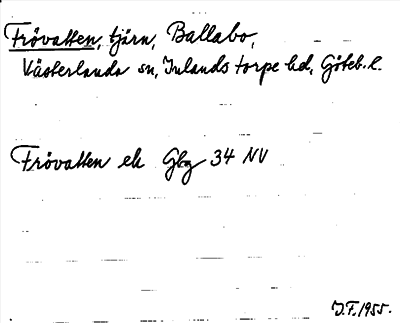 Frövatten, tjärn, Ballabo,
Västerlanda sn, Inlands torpe hd, Göteb. l.
Frövatten ek Gbg 34 NV
J.F. 1955.